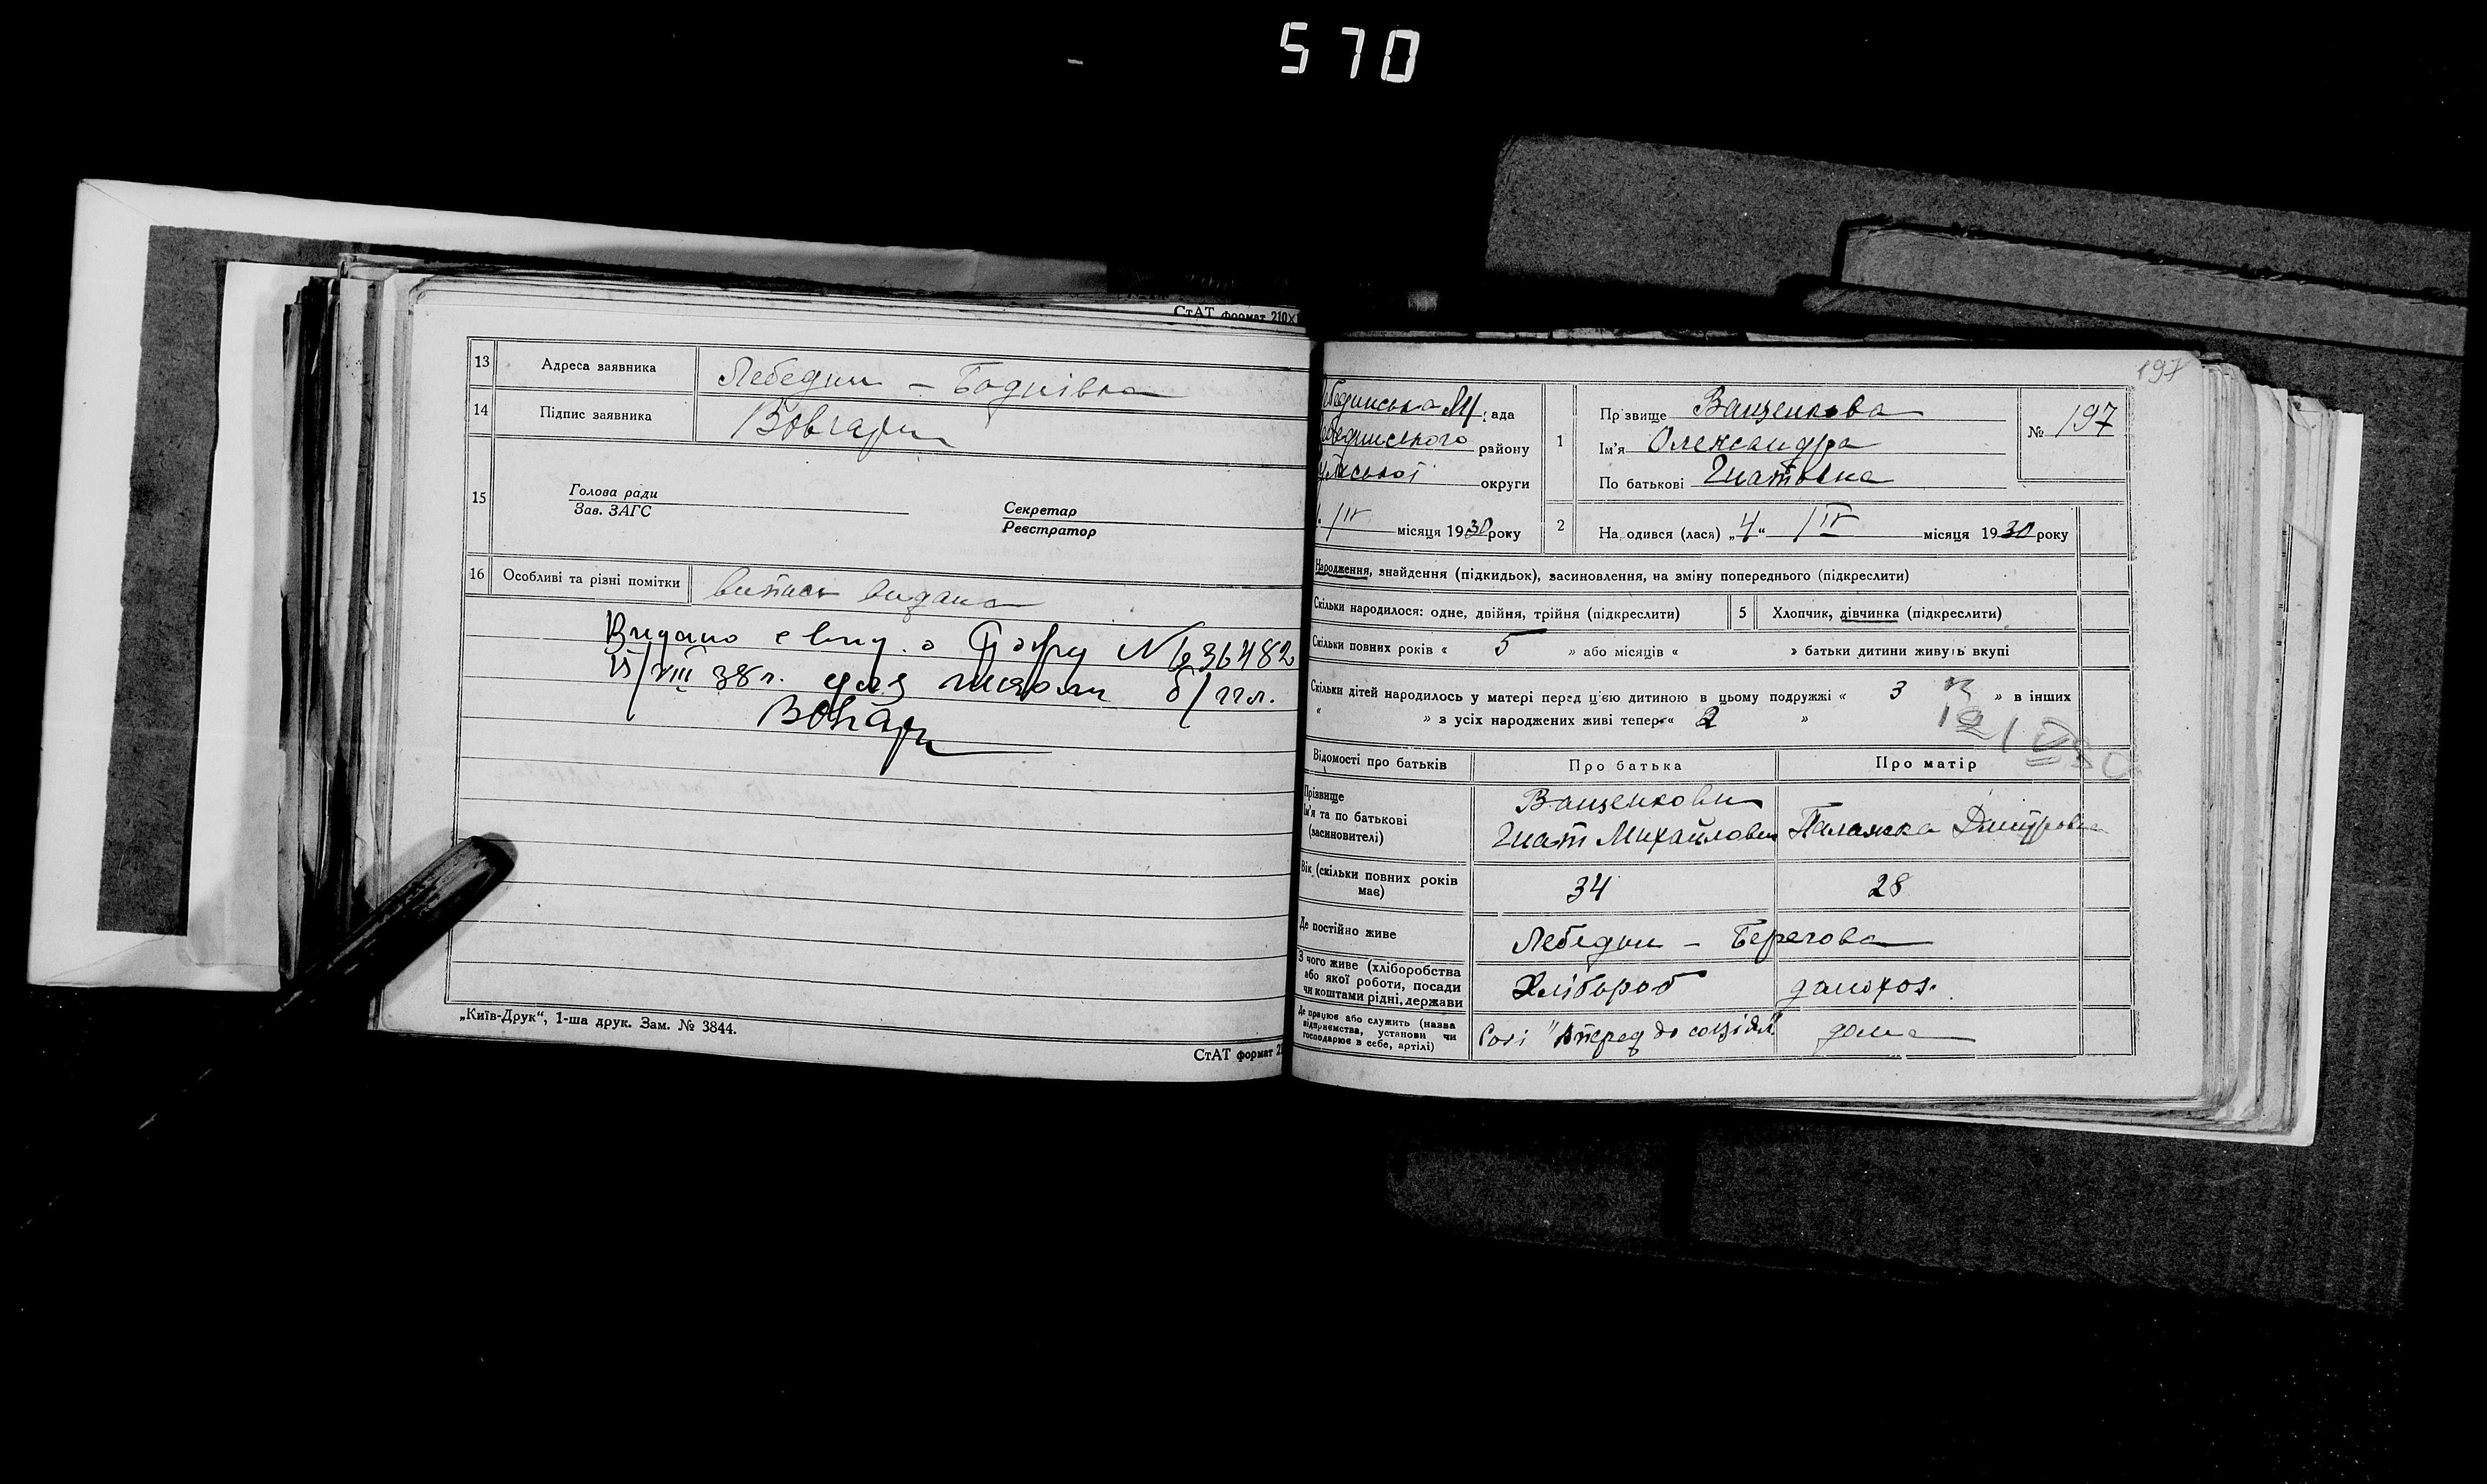 570
СтАТ формат 210×
13 Адреса заявника Лебедин – Боднівка
14 Підпис заявника Вовгари
15 Голова ради
Зав. ЗАГС
Секретар
Реєстратор
16 Особливі та різні помітки випись видана
Видано свид. о № 36482
VIII 38 г. для школи б/пл.
„Київ-Друк“, 1-ша друк. Зам. № 3844.
СтАТ формат 2
197
бединська М рада
бединського району
умської округи
IV місяця 1930 року
1 Прізвище Ващенкова
Ім'я Олександра
По батькові Гнатовна
№ 197
2 Народився (лася) „4“ IV місяця 1930 року
Народження, знайдення (підкидьок), засиновлення, на зміну попереднього (підкреслити)
Скільки народилося: одне, двійня, трійня (підкреслити) 5 Хлопчик, дівчинка (підкреслити)
Скільки повних років « 5 » або місяців « » батьки дитини живуть вкупі
Скільки дітей народилось у матері перед ц'єю дитиною в цьому подружжі « 3 » в інших
« » з усіх народжених живі тепер « 2 »
Відомості про батьків Про батька Про матір
Прізвище
Ім'я та по батькові
(засиновителі)
Ващенкови
Гнат Михайлович Палажка Дмитровна
Вік (скільки повних років має) 34 28
Де постійно живе Лебедин – Берегова
З чого живе (хліборобства
або якої роботи, посади
чи коштами рідні, держави
Хлібороб домохоз.
Де працює або служить (назва
відприємства, установи чи
господарює в себе, артілі)
Созі "Вперед до соціял" дома